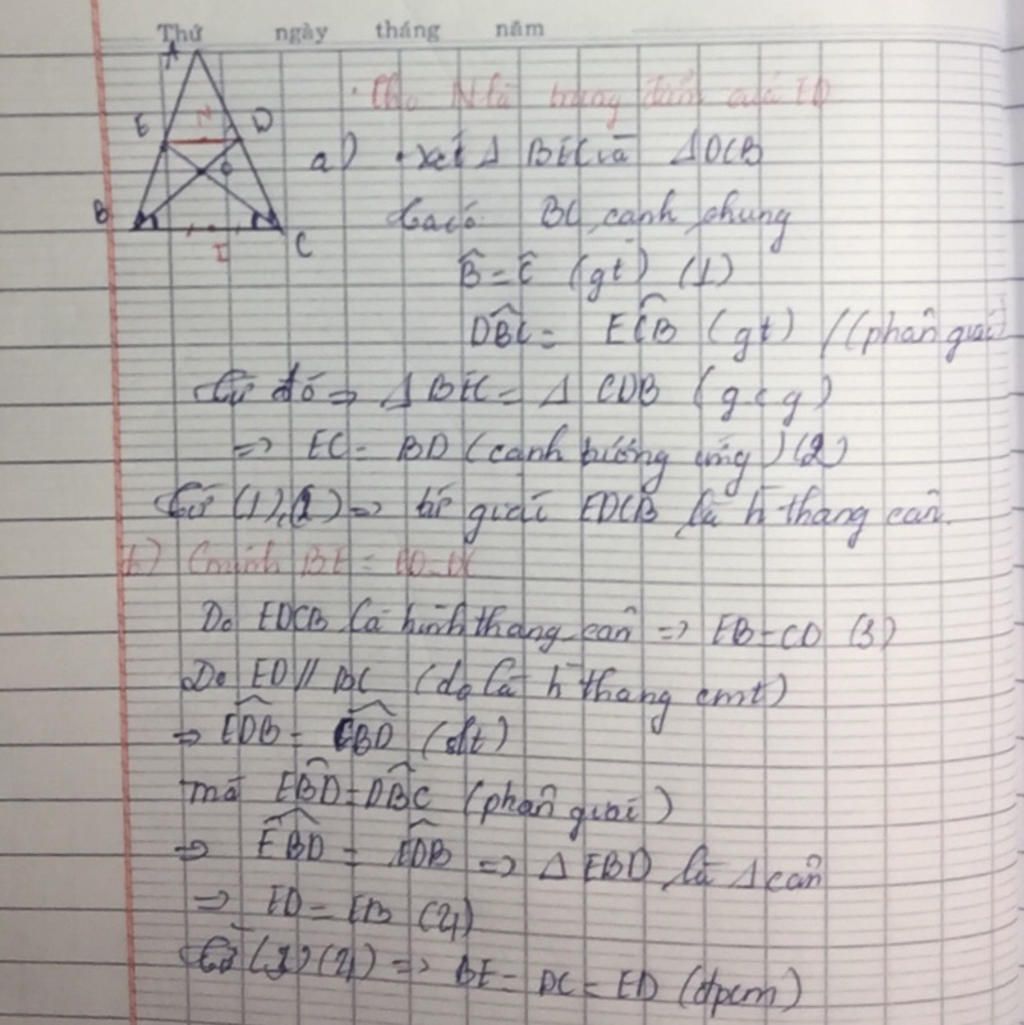 Thứ ngày tháng năm
A
E N D
O
B I C
Cho N là trung điểm của ED
a) + xét Δ BEC và ΔDCB
Ta có BC cạnh chung
B̂ = Ĉ (gt) (1)
DBC = ECB (gt) (phân giác)
Từ đó => Δ BEC = Δ CDB (gcg)
=> EC = BD (cạnh tương ứng) (2)
Từ (1),(2) => tứ giác EDCB là h thang cân.
b) Cminh BE = ED = DC
Do EDCB là hình thang cân => EB = CD (3)
Do ED // BC (do là h thang cmt)
=> EDB = CBD (slt)
mà EBD = DBC (phân giác)
=> EBD = EDB => Δ EBD là Δ cân
=> ED = EB (4)
Từ (3) (4) => BE = DC = ED (đpcm)